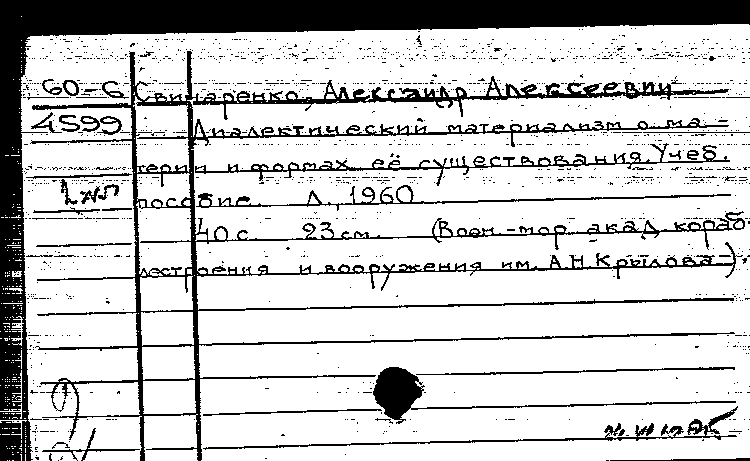 60-6 Свинаренко, Александр Алексеевич
4599 Диалектический материализм о ма-
терии и формах её существования. Учеб.
пособие. Л., 1960.
40 с. 23 см. (Воен.-мор. акад. кораб-
лестроения и вооружения им. А.Н. Крылова).